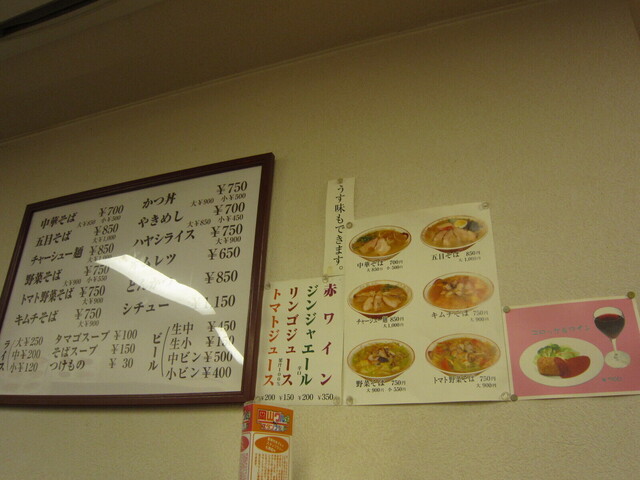 中華そば ¥700
大¥850 小¥500
五目そば ¥850
大¥1,000
チャーシュー麺 ¥850
野菜そば ¥750
大¥900 小¥550
トマト野菜そば ¥750
大¥900
キムチそば ¥750
大¥900
かつ丼 ¥750
大¥900 小¥500
やきめし ¥700
大¥850 小¥450
ハヤシライス ¥750
大¥900
ムレツ ¥650
¥850
シチュー 150
大¥250
中¥200
小¥120
タマゴスープ ¥100
そばスープ ¥150
つけもの ¥ 30
ビール
生中 ¥450
生小
中ビン ¥500
小ビン ¥400
うす味もできます。
赤ワイン ¥350
ジンジャエール 辛口 ¥200
リンゴジュース ¥150
トマトジュース ¥200
中華そば 700円
大850円 小500円
五目そば 850円
大1,000円
チャーシュー麺 850円
大1,000円
キムチそば 750円
大900円
野菜そば 750円
大900円 小550円
トマト野菜そば 750円
大900円